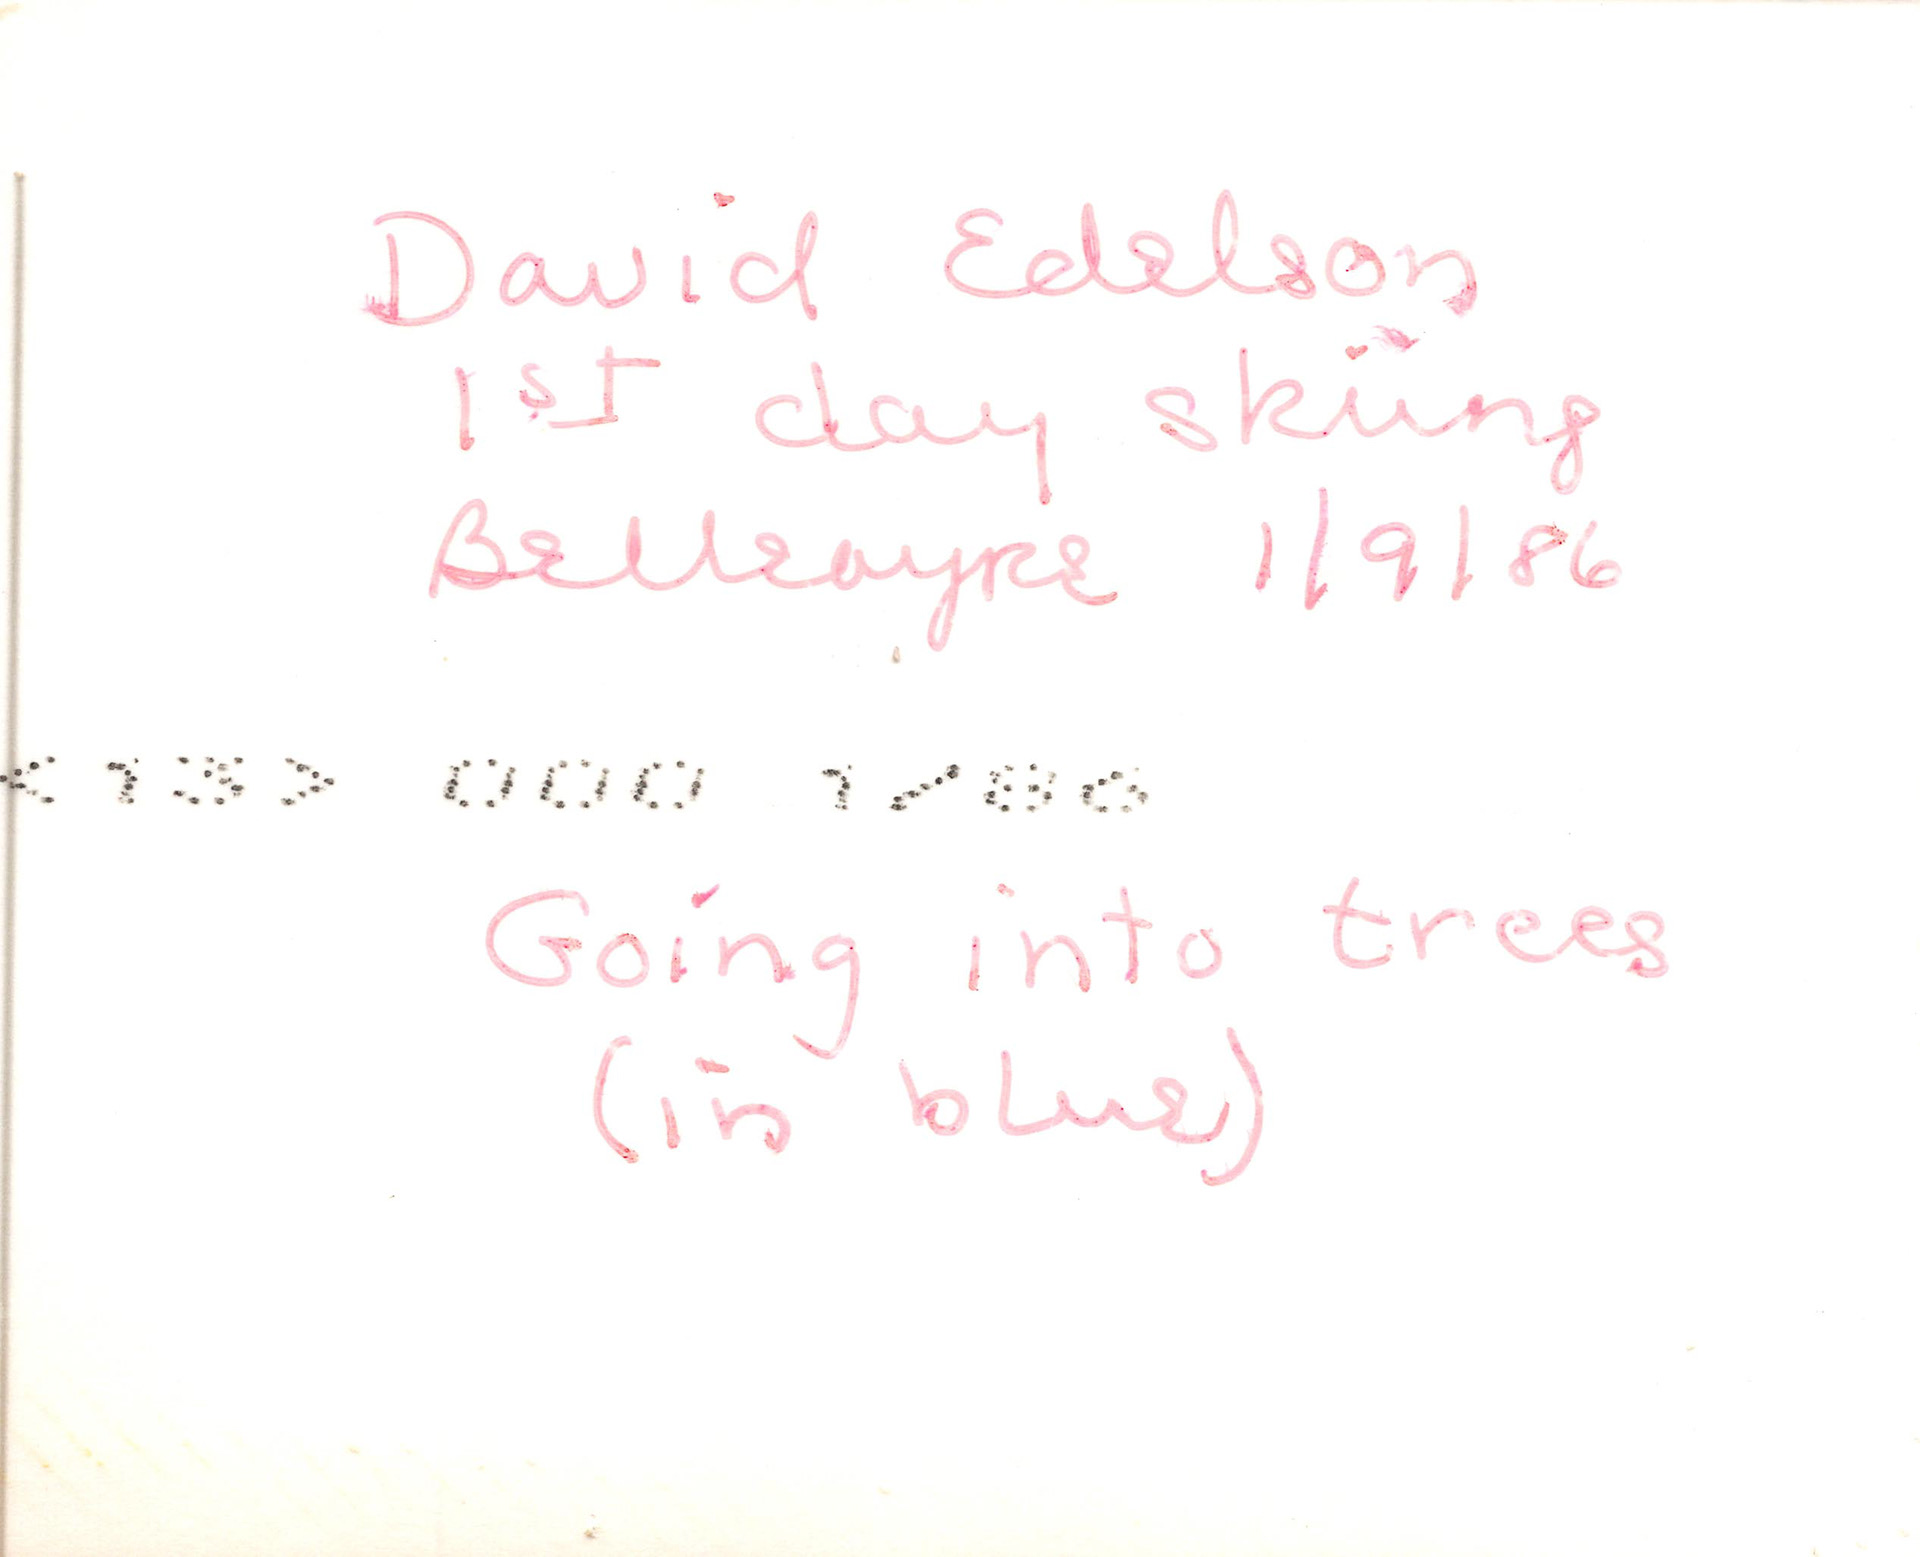 David Edelson
1st day skiing
Belleayre 1/9/86
<13> 000 1/86
Going into trees
(in blue)